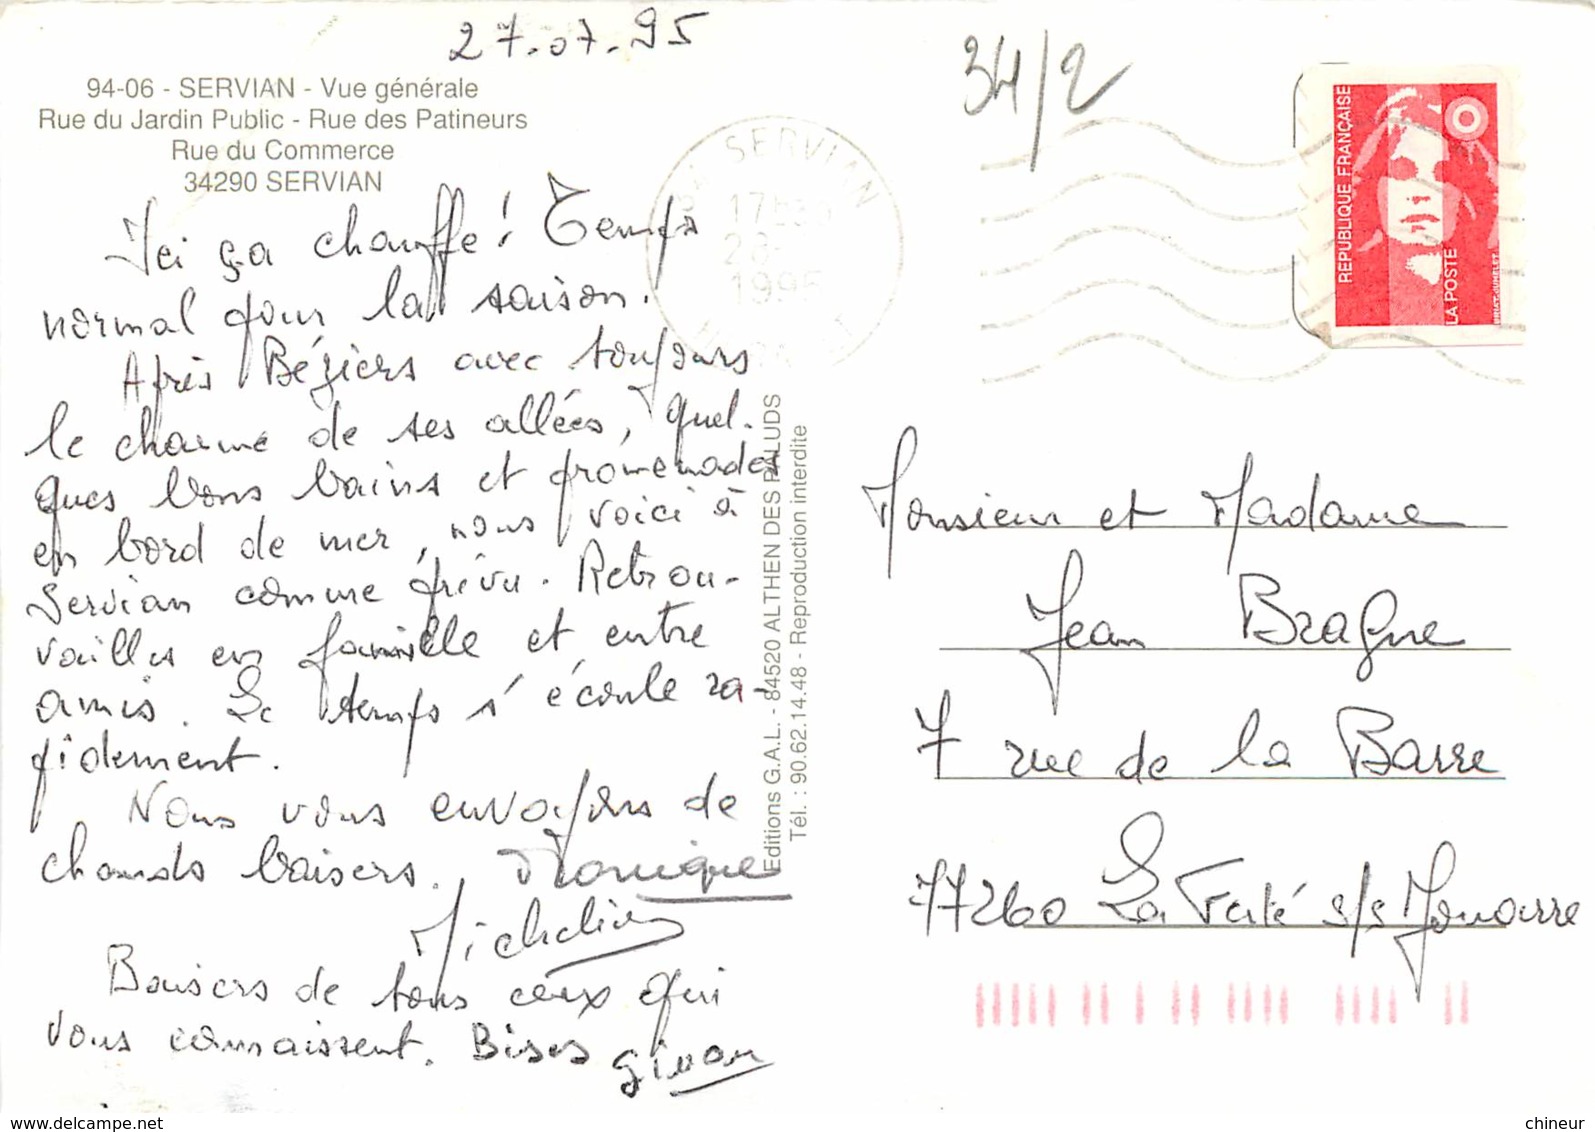 27.07.95
94-06 - SERVIAN - Vue générale
Rue du Jardin Public - Rue des Patineurs
Rue du Commerce
34290 SERVIAN
Ici ça chauffe! Temps
normal pour la saison.
Après Béziers avec toujours
le charme de ses allées, quel-
ques bons bains et promenades
en bord de mer, nous voici à
Servian comme prévu. Retrou-
vailles en famille et entre
amis. Le temps s'écoule ra-
pidement.
Nous vous envoyons de
chauds baisers. Monique
Micheline
Baisers de tous ceux qui
vous connaissent. Bises
Editions G.A.L. - 84520 ALTHEN DES PALUDS
Tél. : 90.62.14.48 - Reproduction interdite
34 SERVIAN
17H
28-
1995
34/2
REPUBLIQUE FRANÇAISE
LA POSTE
Monsieur et Madame
Jean BRAGNE
7 rue de la Barre
77260 La Ferté s/s Jouarre
delcampe.net
chineur